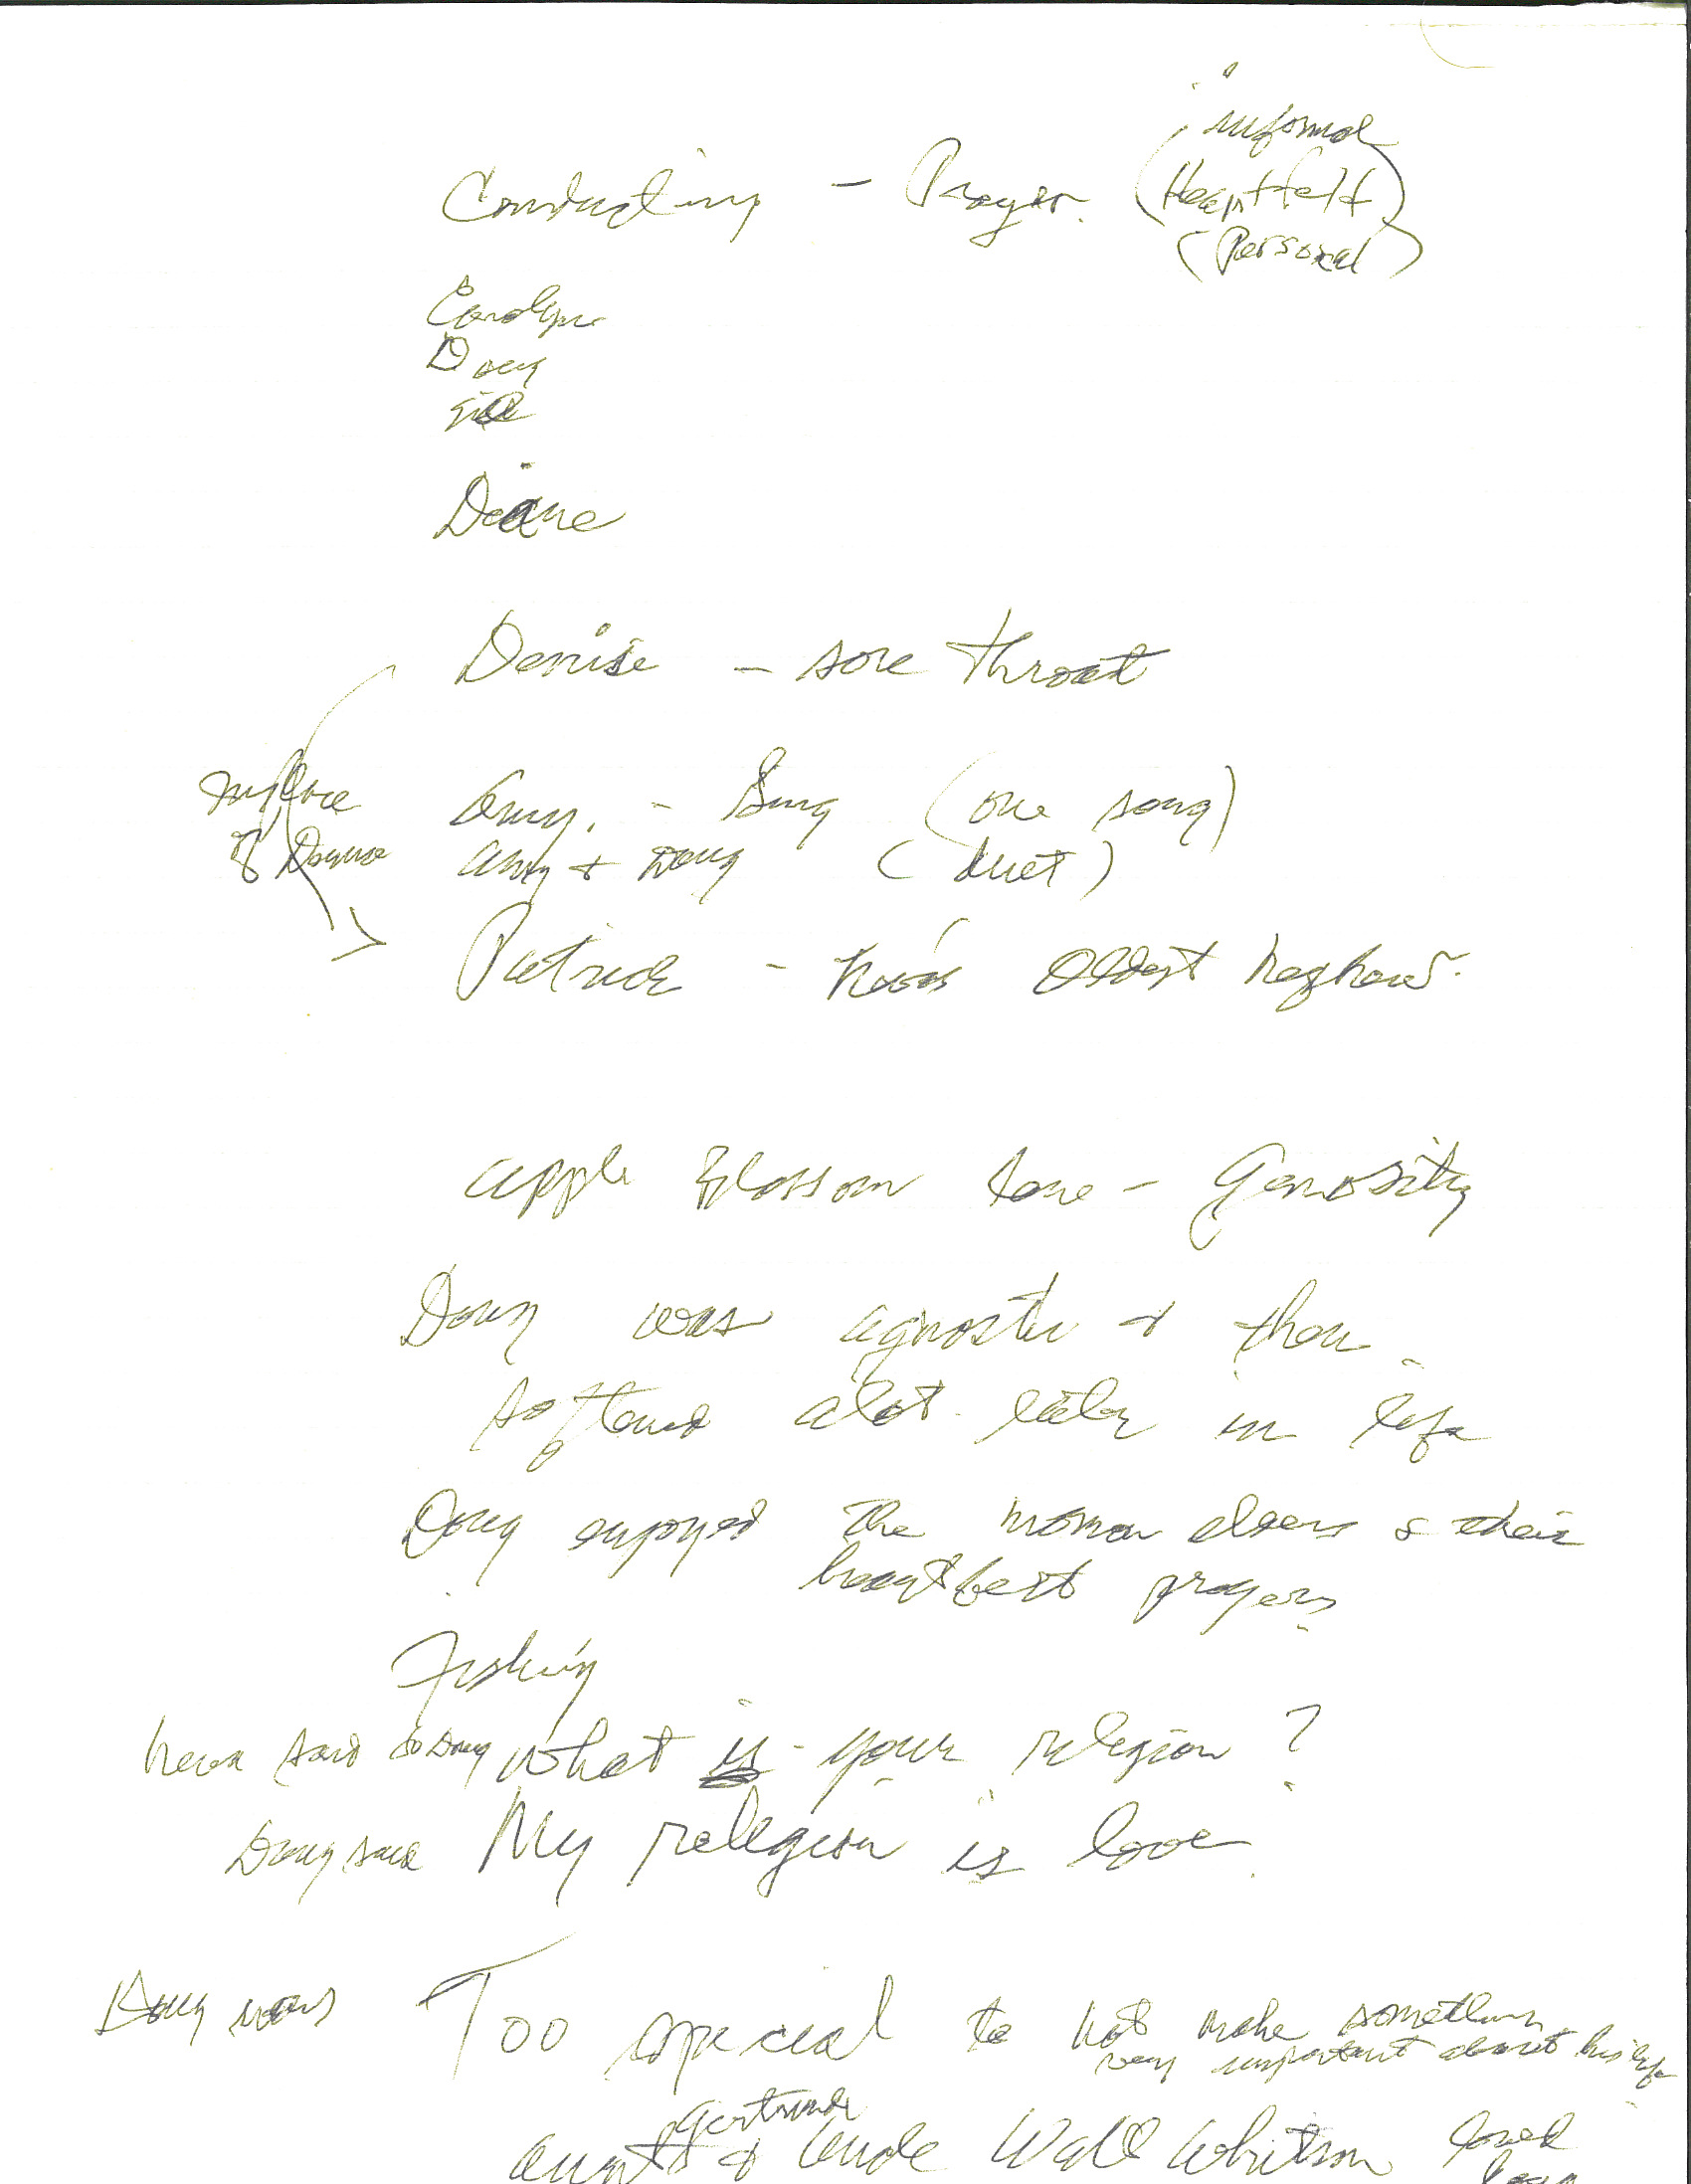 informal
Conducting - Prayer. (Heartfelt)
(Personal)
Carolyn
Doug
Diane
Denise - sore throat
in place Amy. - Sing (one song)
of Donna Amy & Doug (duet)
Patrick - Neva's oldest nephew.
apple Blossom tone - Generosity
Doug was agnostic & then
softened alot later in life
Doug enjoyed the mormon elders & their
heartfelt prayers
Fishing
Neva said to Doug What is your religion?
Doug said My religion is love
Doug was Too special to not make something
very important about his life
Gertrude
Aunt & Uncle Walt Whitson loved